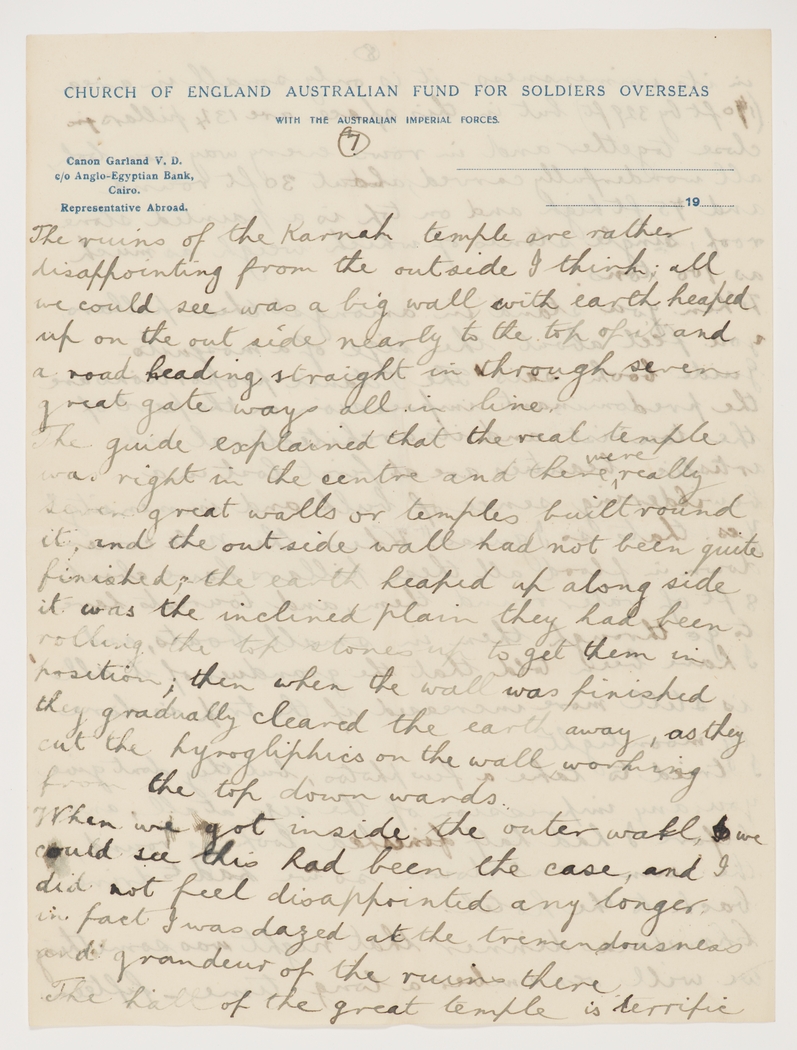 CHURCH OF ENGLAND AUSTRALIAN FUND FOR SOLDIERS OVERSEAS
WITH THE AUSTRALIAN IMPERIAL FORCES.
7
Canon Garland V. D.
c/o Anglo-Egyptian Bank,
Cairo.
Representative Abroad.
19
The ruins of the Karnah temple are rather
disappointing from the outside I think; all
we could see was a big wall with earth heaped
up on the out side nearly to the top of it and
a road leading straight in through seven
great gate ways all in line.
The guide explained that the real temple
was right in the centre and there were really
seven great walls or temples built round
it, and the outside wall had not been quite
finished; the earth heaped up along side
it was the inclined plain they had been
rolling the top stones up to get them in
position; then when the wall was finished
they gradually cleared the earth away, as they
cut the hyrogliphics on the wall working
from the top down wards.
When we got inside the outer wall, we
could see this had been the case, and I
did not feel disappointed any longer
in fact I was dazed at the tremendousness
and grandeur of the ruins there
The hall of the great temple is terrific